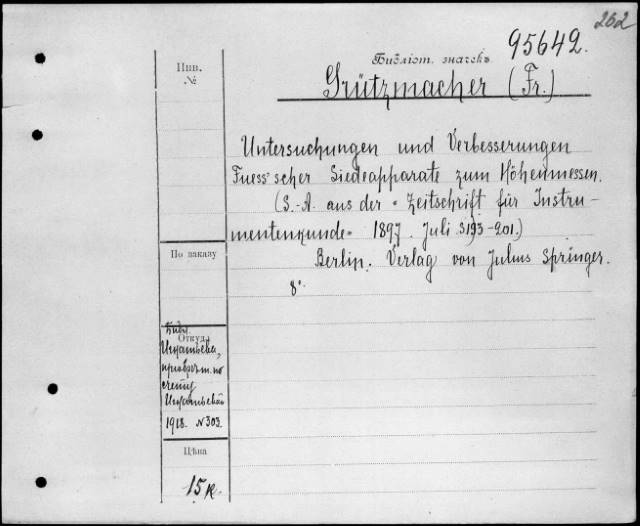 262
95642.
Инв.
№
Библіот. значекъ
Grützmacher (Fr.)
Untersuchungen und Verbesserungen
Fuess'scher Siedeapparate zum Höhenmessen.
(S.-A. aus der "Zeitschrift für Instru-
mentenkunde" 1897. Juli. S. 193-201.)
Berlin. Verlag von Julius Springer.
8°.
По заказу
Откуда
Библ.
Игнатьева,
по
счету
1918. N 303.
Цѣна
15 к.